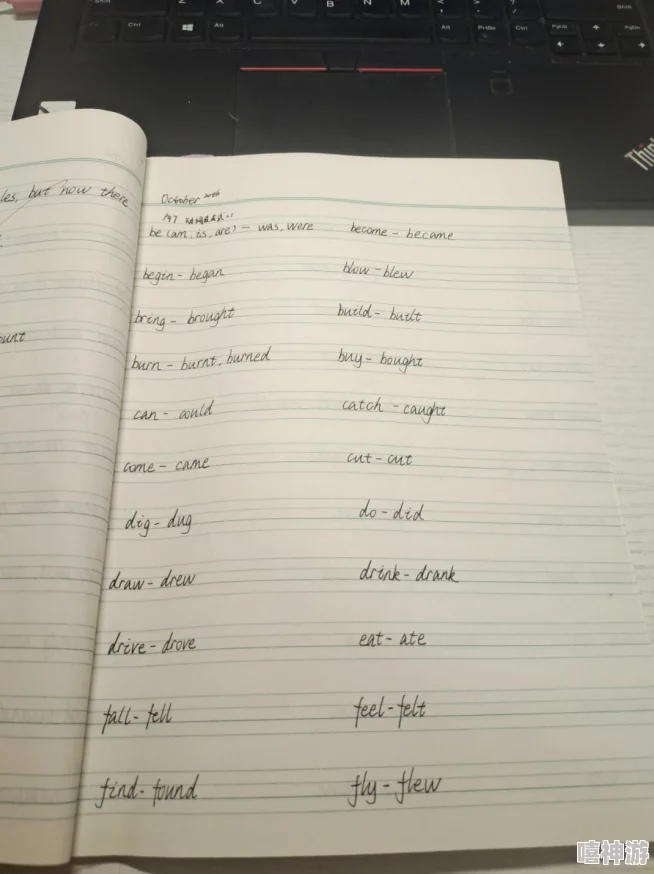 Shift Z X C V B N M Shift
Ctrl Alt Alt PrtSc Ctrl PgUp PgDn
Think
les, but now there
ount
October 20th
P97
be (am, is, are) – was, were become – became
begin – began blow – blew
bring – brought build – built
burn – burnt, burned buy – bought
can – could catch – caught
come – came cut – cut
dig – dug do – did
draw – drew drink – drank
drive – drove eat – ate
fall – fell feel – felt
find – found fly – flew
嘻神游